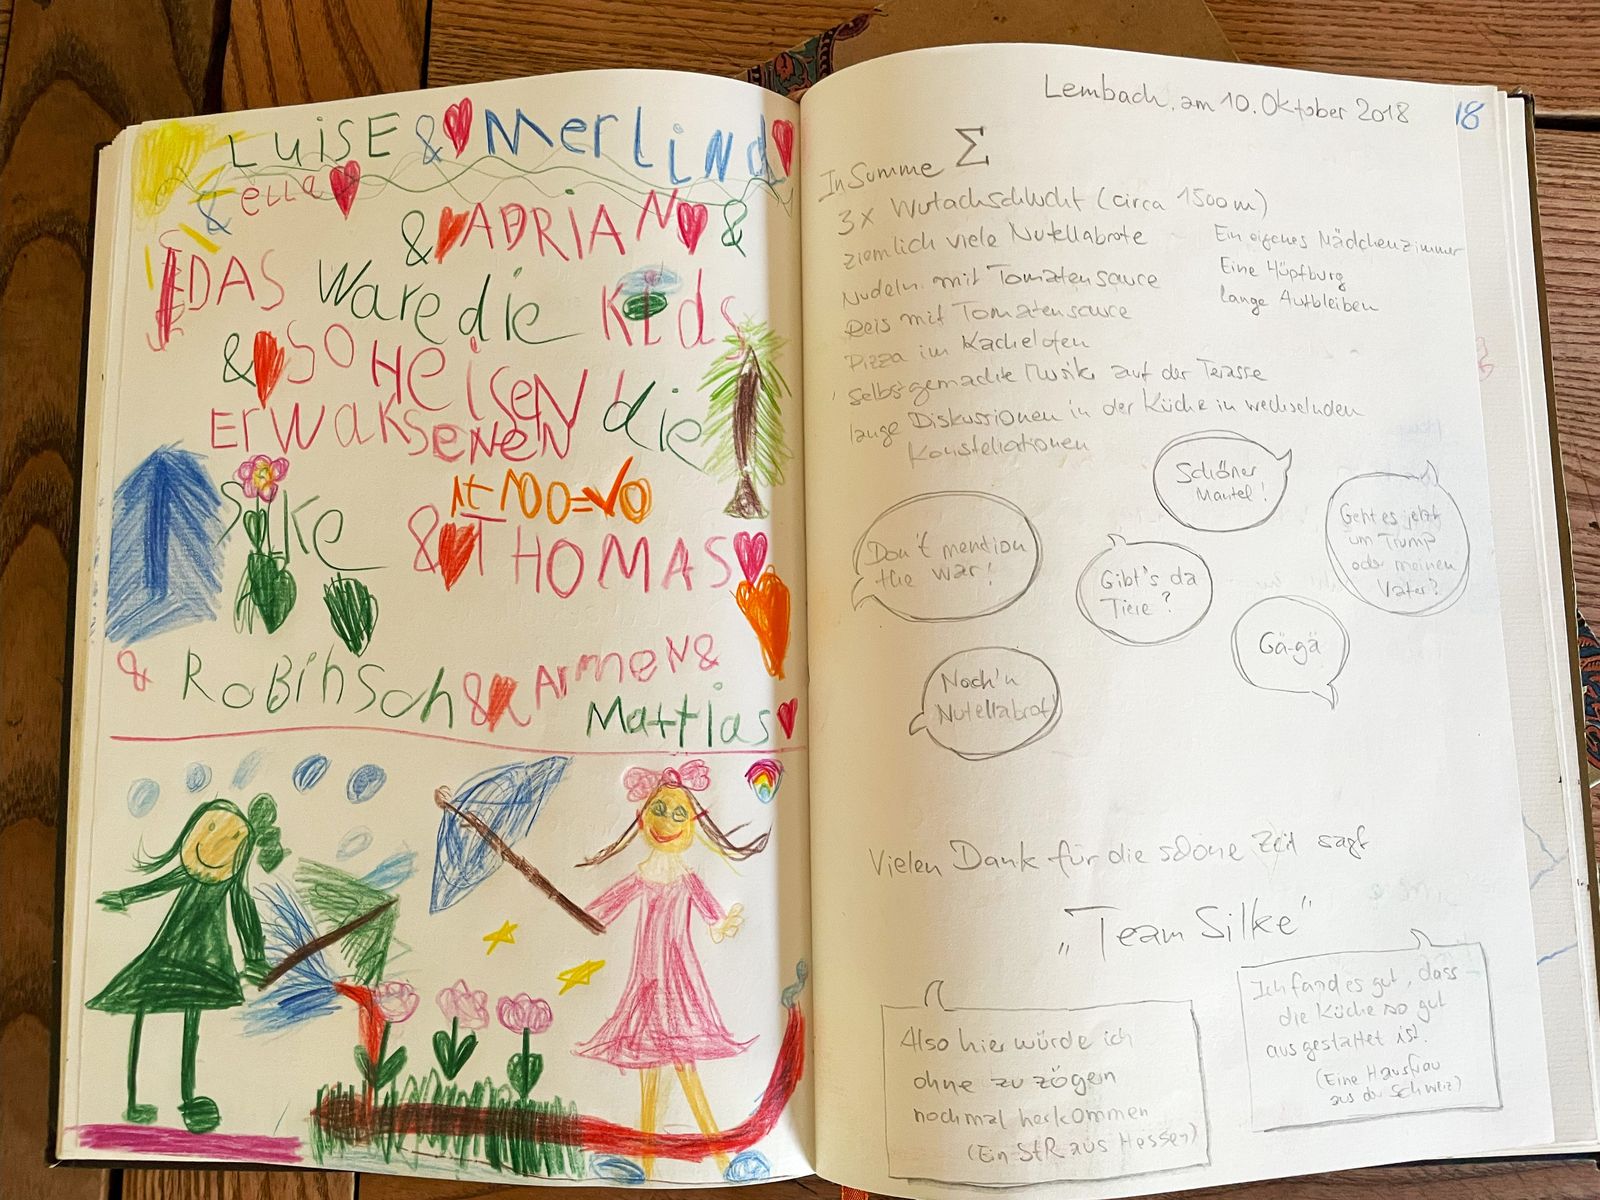 LUiSE & MerLiNd
& eLLa
& ADRiAN &
DAS Ware die Kids
& SO HeiseN die
ERWaKSeNeN
Silke 1+100=VO & THOMAS
& RoBiNSoN & ArmeN &
Mattias
Lembach, am 10. Oktober 2018
18
In Summe Σ
3x Wutachschlucht (circa 1500m)
ziemlich viele Nutellabrote
Nudeln mit Tomatensauce
Reis mit Tomatensauce
Pizza im Kachelofen
Selbstgemachte Musik auf der Terasse
lange Diskussionen in der Küche in wechselnden
Konstellationen
Ein eigenes Mädchenzimmer
Eine Hüpfburg
lange Aufbleiben
Schöner
Mantel!
Geht es jetzt
um Trump
oder meinen
Vater?
Don't mention
the war!
Gibt's da
Tiere?
Gä-gä
Noch'n
Nutellabrot
Vielen Dank für die schöne Zeit sagt
„Team Silke"
Also hier würde ich
ohne zu zögern
nochmal herkommen
(Ein StR aus Hessen)
Ich fand es gut, dass
die Küche so gut
ausgestattet ist.
(Eine Hausfrau
aus der Schweiz)